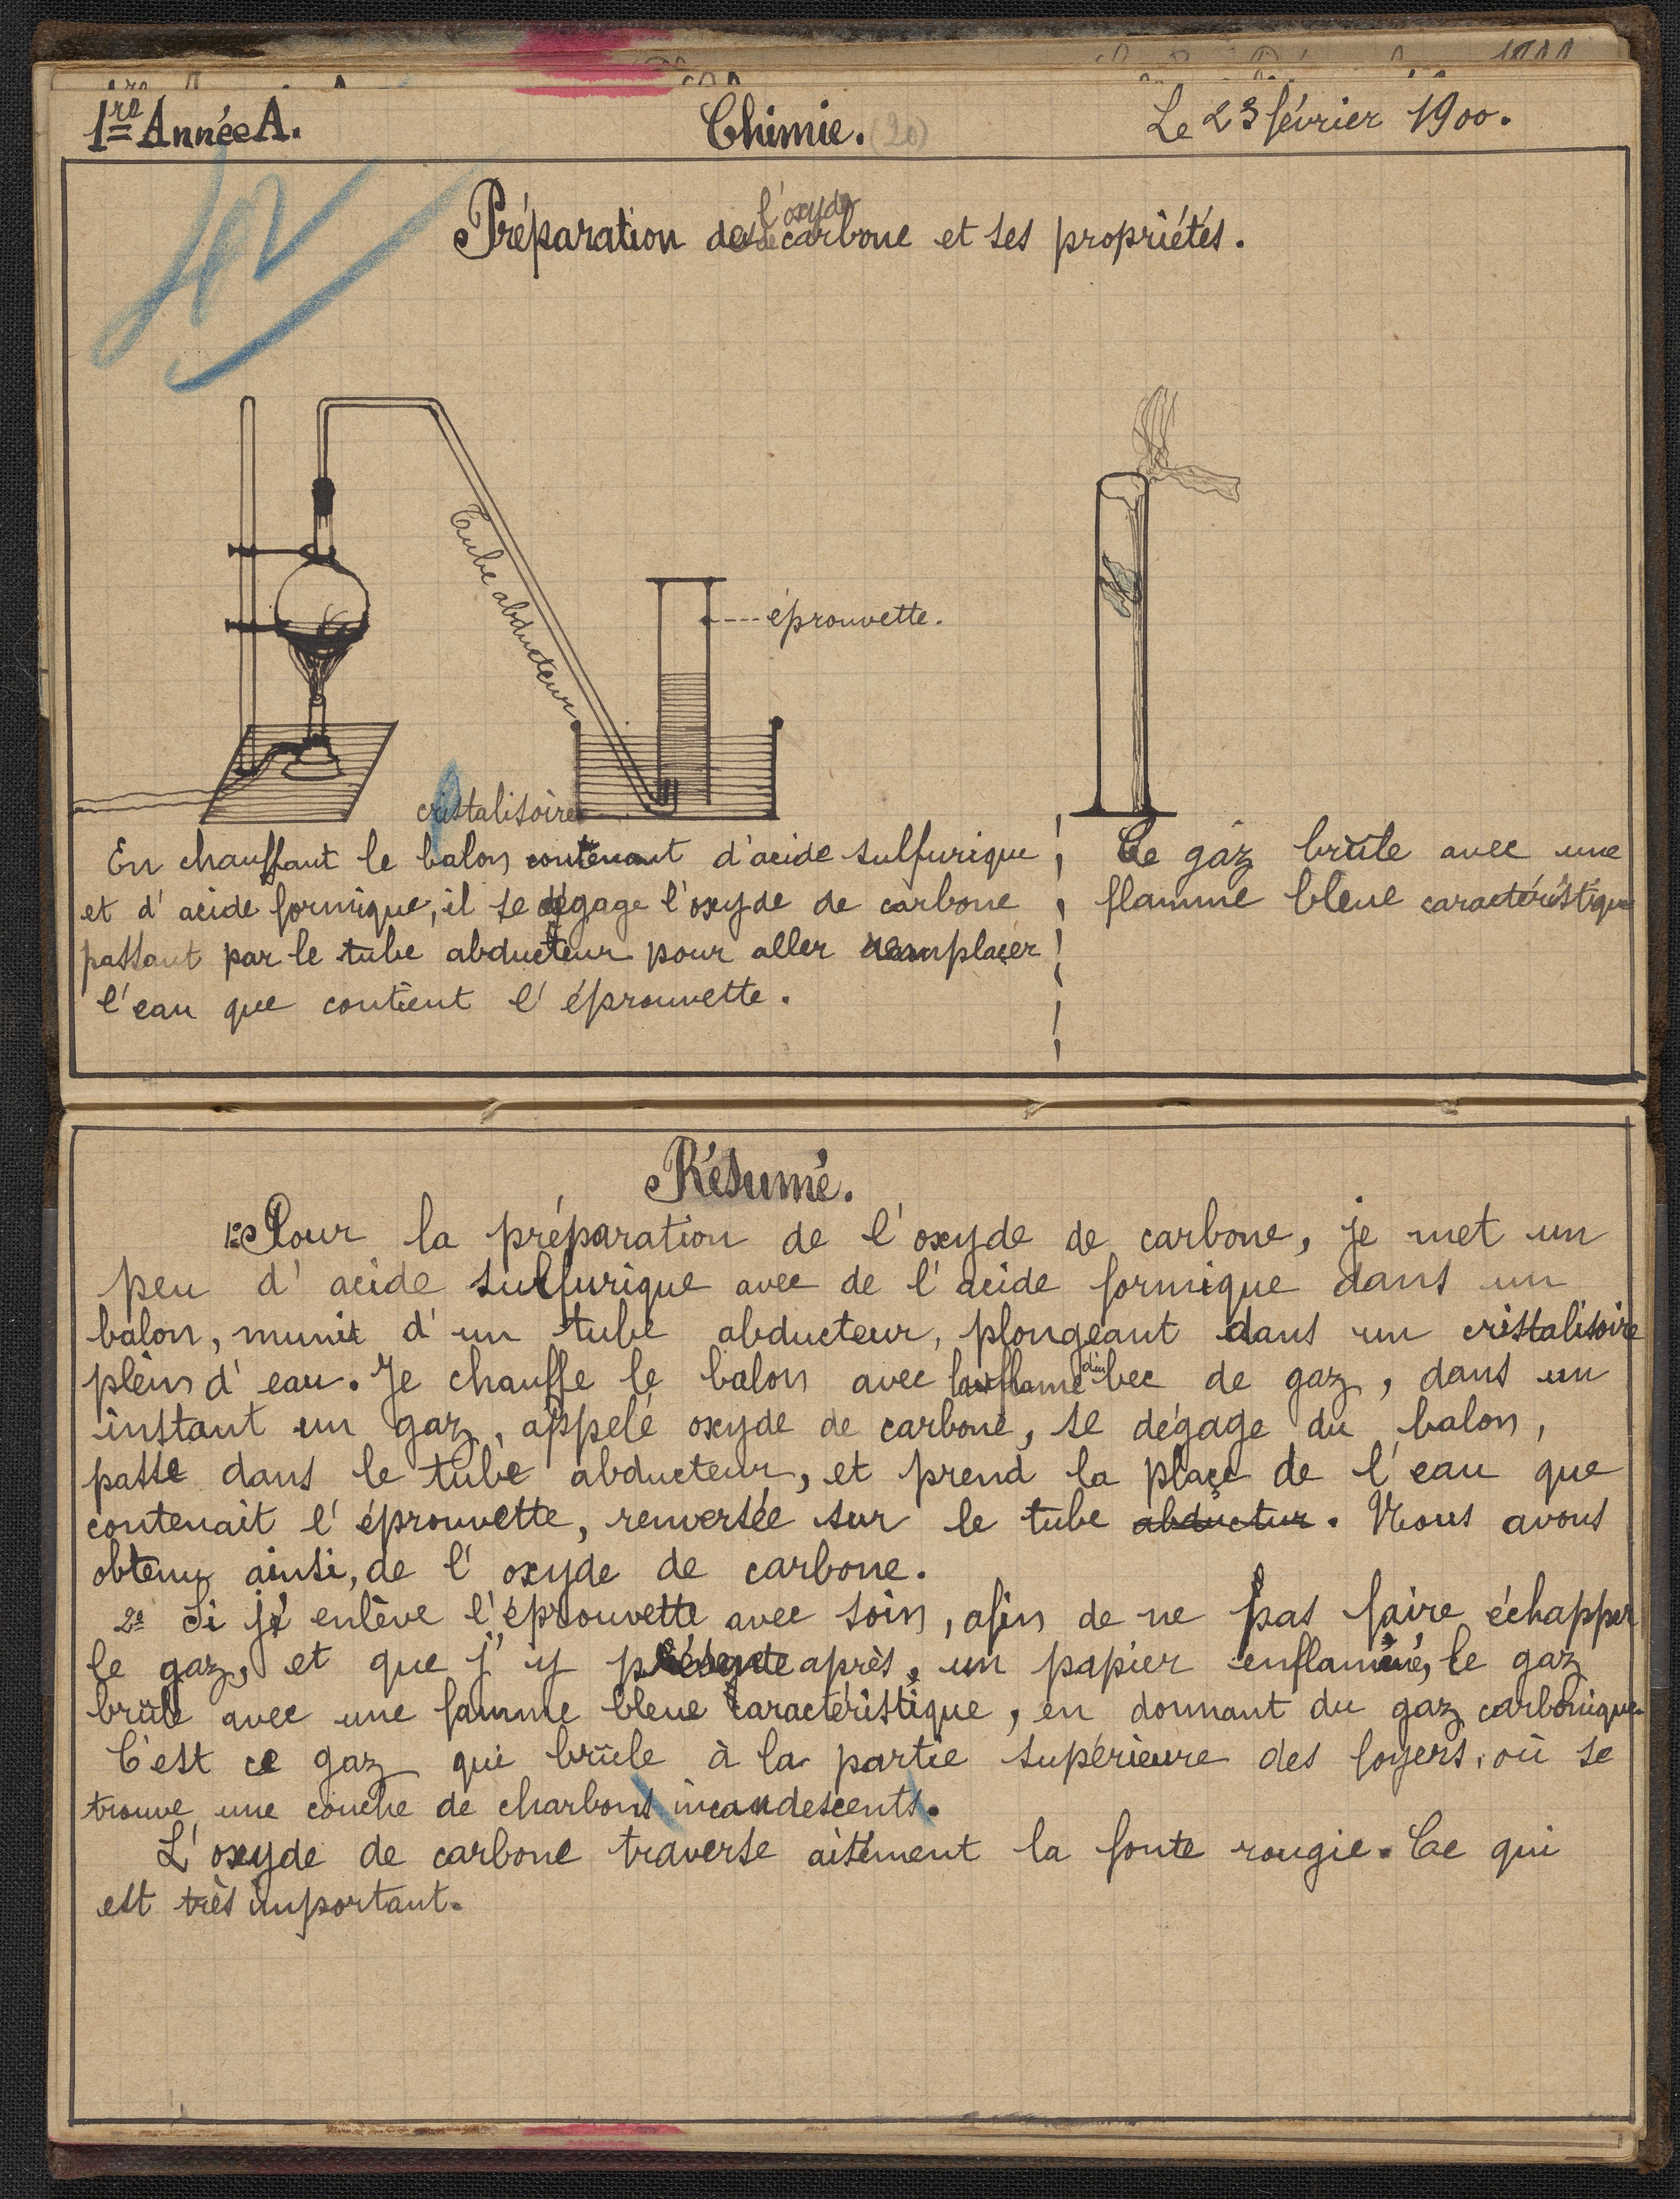 1re Année A.
Chimie. (20)
Le 23 février 1900.
l'oxyde
Préparation de carbone et ses propriétés.
Taube abducteur
éprouvette.
cristalisoire
En chauffant le balon contenant d'acide sulfurique
et d'acide formique, il se dégage l'oxyde de carbone
passant par le tube abducteur pour aller remplaçer
l'eau que contient l'éprouvette.
Ce gaz brûle avec une
flamme bleue caractéristique
Résumé.
1º Pour la préparation de l'oxyde de carbone, je met un
peu d'acide sulfurique avec de l'acide formique dans un
balon, munit d'un tube abducteur, plongeant dans un cristalisoire
plein d'eau. Je chauffe le balon avec la flame du bec de gaz, dans un
instant un gaz, appelé oxyde de carbone, se dégage du balon,
passe dans le tube abducteur, et prend la plaçe de l'eau que
contenait l'éprouvette, renversée sur le tube abductur. Nous avons
obtenu ainsi, de l'oxyde de carbone.
2º Si je enlève l'éprouvette avec soin, afin de ne pas faire échapper
le gaz, et que j'y présente après, un papier enflammé, le gaz
brûle avec une famme bleue caractéristique, en donnant du gaz carbonique.
C'est ce gaz qui brûle à la partie supérieure des foyers, où se
trouve une couche de charbons incandescents.
L'oxyde de carbone traverse aisément la fonte rougie. Ce qui
est très important.